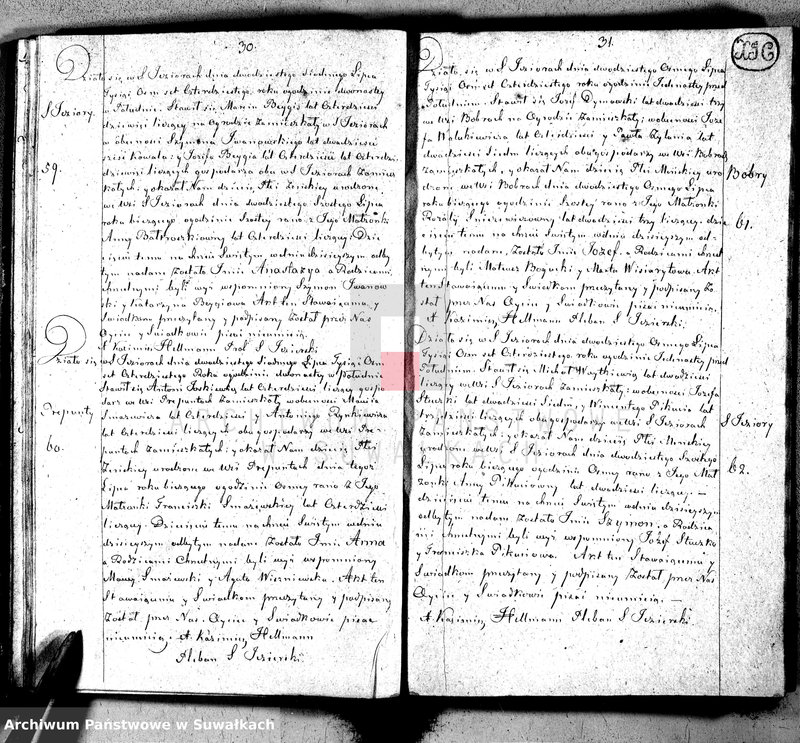 30.
Działo się w S Jeziorach dnia dwudziestego siodmego Lipca
Tysiąc Osm set Czterdziestego, roku ogodzinie dwonastey
w Południe. Stawił się Marcin
dziewięc liczący na Ogrodzie Zamieszkały w S Jeziorach
w obecnosci Szymona Iwanowskiego lat dwadziescia
lat Czterdziesci
liczący gospodarza oba w S Jeziorach Zamiesz
kałych; y okazał Nam dziecię Płci Zenskiey urodzone
we Wsi S Jeziorach dnia dwudziestego Szostego Lipca
roku bieżącego ogodzinie Szostey rano z Jego Małzonki
Anny lat Czterdziesci liczący. Dzie
cięciu temu na chrzci Swiętym wdniu dzisieyszym odby
tym nadane Zostało Imie Anastazya a Rodzicami
Chrzestnymi byli wyż wspomniony Szymon Iwanow
ski y Katarzyna Akt ten Stawaiącemu y
Swiadkom przeczytany y podpisany Został przez Nas
Oyciec y Swiadkowie pisac nieumieią.
X Kazimierz Hellmann S Jezierski
S Jeziory.
59.
Działo się w S Jeziorach dnia dwudziestego Siodmego Lipca Tysiąc Osm
set Czterdziestego Roku ogodzinie dwonastey w Południe
Stawił się Antoni lat Czterdziesci liczący gospo
darz we Wsi Prepuntach Zamieszkały wobecnosci Macieia
lat Czterdziesci y Antoniego Rynkiewicza
lat Czterdziesci liczących obu gospodarzy we Wsi Pre-
puntach Zamieszkałych; y okazał Nam dziecię Płci
Zenskiey urodzone we Wsi Prepuntach dnia tegoż
Lipca roku bieżącego ogodzinie Osmy rano z Jego
Małzonki Franciszki lat Czterdziesci
liczący. Dziecięciu temu na chrzci Swiętym wdniu
dzisieyszym odbytym nadane Zostało Imie Anna
a Rodzicami Chrzestnymi byli wyż wspomniony
Maciey y Agata Wisniewska. Akt ten
Stawaiącemu y Swiadkom przeczytany y podpisany
Został przez Nas. Oyciec y Swiadkowie pisac
nieumieią. X. Kazimierz Hellmann
Pleban S Jezierski.
Prepunty
60.
31.
Działo się w S Jeziorach dnia dwudziestego Osmego Lipca
Tysiąc Osm set Czterdziestego roku ogodzinie Jednastey przed
Południem. Stawił się Jozef Dymowski lat dwadziescia trzy
we Wsi Bobrach na Ogrodzie Zamieszkały; wobecnosci Joze
fa lat Czterdziesci y Pawła lat
dwadziescia Siedm liczących obu gospodarzy we Wsi Bobrach
Zamieszkałych, y okazał Nam dziecię Płci Męskiey uro
dzone we Wsi Bobrach dnia dwudziestego Osmego Lipca
roku bieżącego ogodzinie Szostey rano z Jego Małzonki
Rozalij lat dwadziescia trzy liczący; dzie
cięciu temu na chrzci Swiętym wdniu dzisieyszym od-
bytym nadane Zostało Imie Jozef. a Rodzicami Chrzest
nymi byli Mateusz y Marta Akt
ten Stawaiącemu y Swiadkom przeczytany y podpisany Zo
stał przez Nas Oyciec y Swiadkowie pisac nieumieią.
X Kazimierz Hellmann Pleban S Jezierski.
Bobry
61.
Działo się w S Jeziorach dnia dwudziestego Osmego Lipca
Tysiąc Osm set Czterdziestego. roku ogodzinie Jednastey przed
Południem. Stawił się Michał lat dwadziescia
liczący we Wsi S Jeziorach Zamieszkały; wobecnosci Jozefa
lat dwadziescia Siedm y Wincentego Pikucia lat
trzydziesci liczących obu gospodarzy we Wsi S Jeziorach
Zamieszkałych; y okazał Nam dziecię Płci Męskiey
urodzone we Wsi S Jeziorach dnia dwudziestego Szostego
Lipca roku bieżącego ogodzinie Osmy rano z Jego Mał
zonki Anny lat dwadziescia liczący. —
dziecięciu temu na chrzci Swiętym wdniu dzisieyszym
odbytym nadane Zostało Imie Szymon. a Rodzica
mi Chrzestnymi byli wyż wspomniony Jozef
y Franciszka Pikuciowa. Akt ten Stawaiącemu y
Swiadkom przeczytany y podpisany Został przez Nas
Oyciec y Swiadkowie pisac nieumieią. —
X Kazimierz Hellmann Pleban S Jezierski
S Jeziory
62.
Archiwum Państwowe w Suwałkach